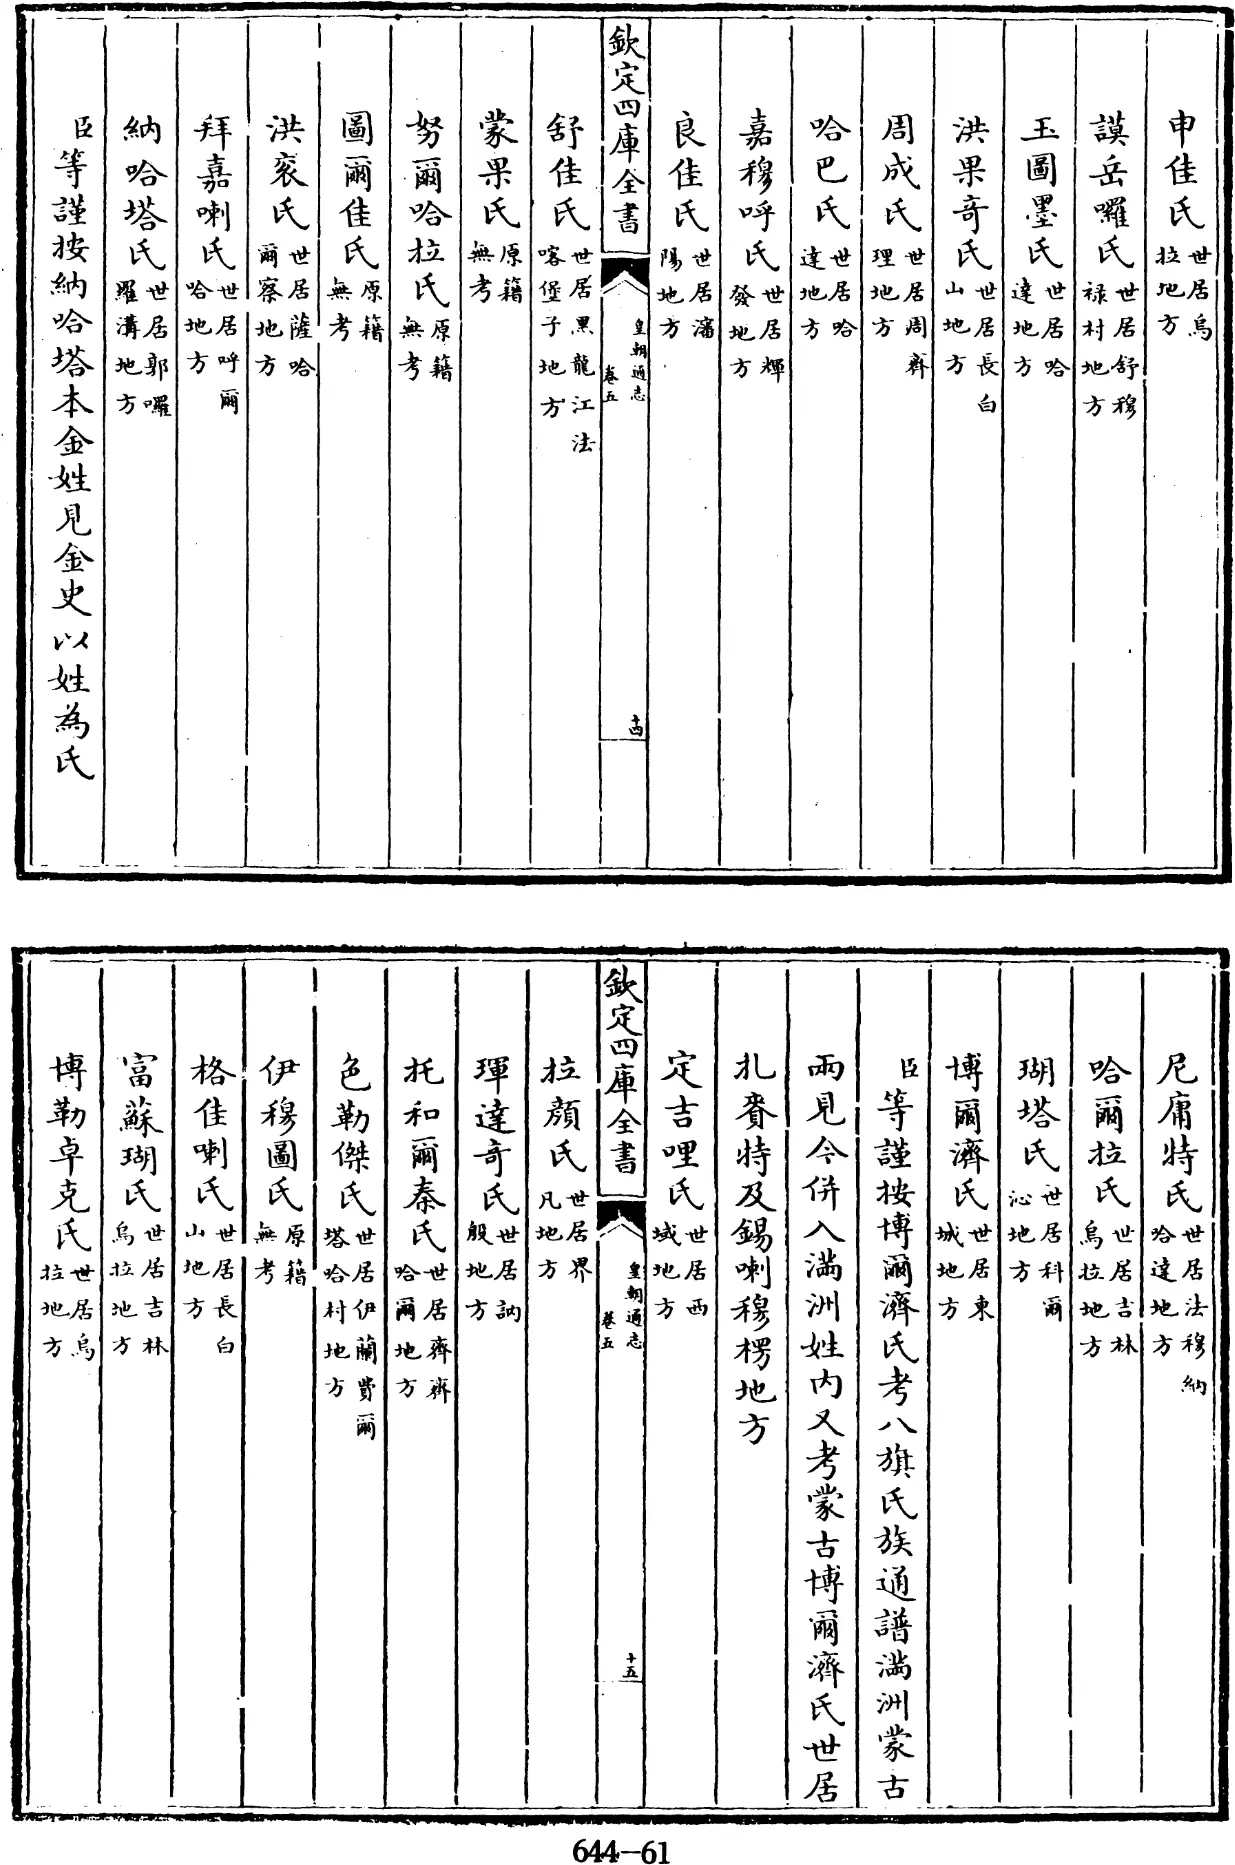 申佳氏世居烏拉地方
謨岳囉氏世居舒穆祿村地方
玉圖墨氏世居哈達地方
洪果奇氏世居長白山地方
周成氏世居周齊理地方
哈巴氏世居哈達地方
嘉穆呼氏世居輝發地方
良佳氏世居瀋陽地方
欽定四庫全書
皇朝通志
卷五
十四
舒佳氏世居黑龍江法喀堡子地方
蒙果氏原籍無考
努爾哈拉氏原籍無考
圖爾佳氏原籍無考
洪衮氏世居薩哈爾察地方
拜嘉喇氏世居呼爾哈地方
納哈塔氏世居郭囉羅溝地方
臣等謹按納哈塔本金姓見金史以姓為氏
尼庸特氏世居法穆納哈達地方
哈爾拉氏世居吉林烏拉地方
瑚塔氏世居科爾沁地方
博爾濟氏世居東城地方
臣等謹按博爾濟氏考八旗氏族通譜滿洲蒙古
兩見今併入滿洲姓內又考蒙古博爾濟氏世居
札賚特及錫喇穆楞地方
定吉哩氏世居西域地方
欽定四庫全書
皇朝通志
卷五
十五
拉顏氏世居界凡地方
琿達奇氏世居訥殷地方
托和爾秦氏世居齊齊哈爾地方
色勒傑氏世居伊蘭費爾塔哈村地方
伊穆圖氏原籍無考
格佳喇氏世居長白山地方
富蘇瑚氏世居吉林烏拉地方
博勒卓克氏世居烏拉地方
644-61